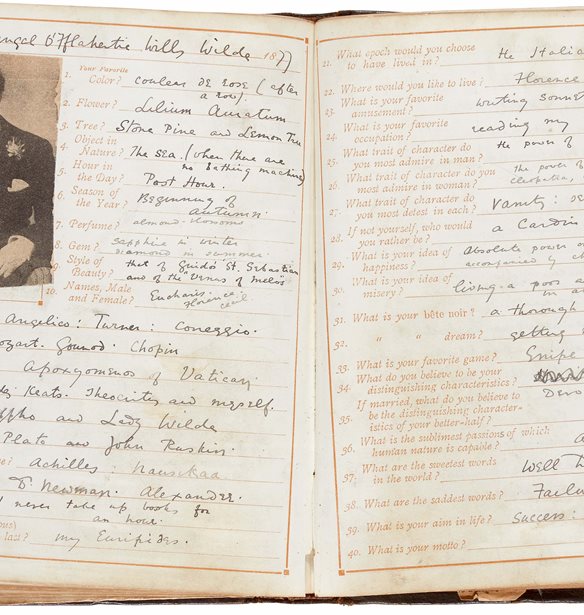 ingal O'Fflahertie Wills Wilde 1877
Your Favorite
1. Color? couleur de rose (after
a row).
2. Flower? Lilium Auratum
3. Tree? Stone Pine and Lemon Tree
4. Object in
Nature? The sea. (when there are
no bathing machines)
5. Hour in
the Day? Post Hour.
6. Season of
the Year? Beginning of
autumn.
7. Perfume? almond-blossoms
8. Gem? Sapphire in winter
diamond in summer.
9. Style of
Beauty? that of Guido's St. Sebastian
and of the Venus of Melos
10. Names, Male
and Female? Eucharis
florence
cecil
Angelico: Turner: Correggio.
ozart. Gounod. Chopin
Apoxyomenos of Vatican
Keats. Theocritus and myself.
ppho and Lady Wilde
Plato and John Ruskin.
Achilles: Nausikaa
D. Newman. Alexander.
I never take up books for
an hour.
last? my Euripides.
21. What epoch would you choose
to have lived in? the Italia
22. Where would you like to live? Florence
23. What is your favorite
amusement? writing sonnet
24. What is your favorite
occupation? reading my
25. What trait of character do
you most admire in man? the power of
26. What trait of character do you
most admire in woman? the power of
cleopatra,
27. What trait of character do
you most detest in each? Vanity:
28. If not yourself, who would
you rather be? a Cardin
29. What is your idea of
happiness? Absolute power o
accompanied by ch
30. What is your idea of
misery? living a poor a
in a
31. What is your bête noir? a thorough
32. " " dream? getting
33. What is your favorite game? Snipe
34. What do you believe to be your
distinguishing characteristics?
35. If married, what do you believe to
be the distinguishing character-
istics of your better-half? Devo
36. What is the sublimest passions of which
human nature is capable? a
37. What are the sweetest words
in the world? Well D
38. What are the saddest words? Failu
39. What is your aim in life? Success:
40. What is your motto?